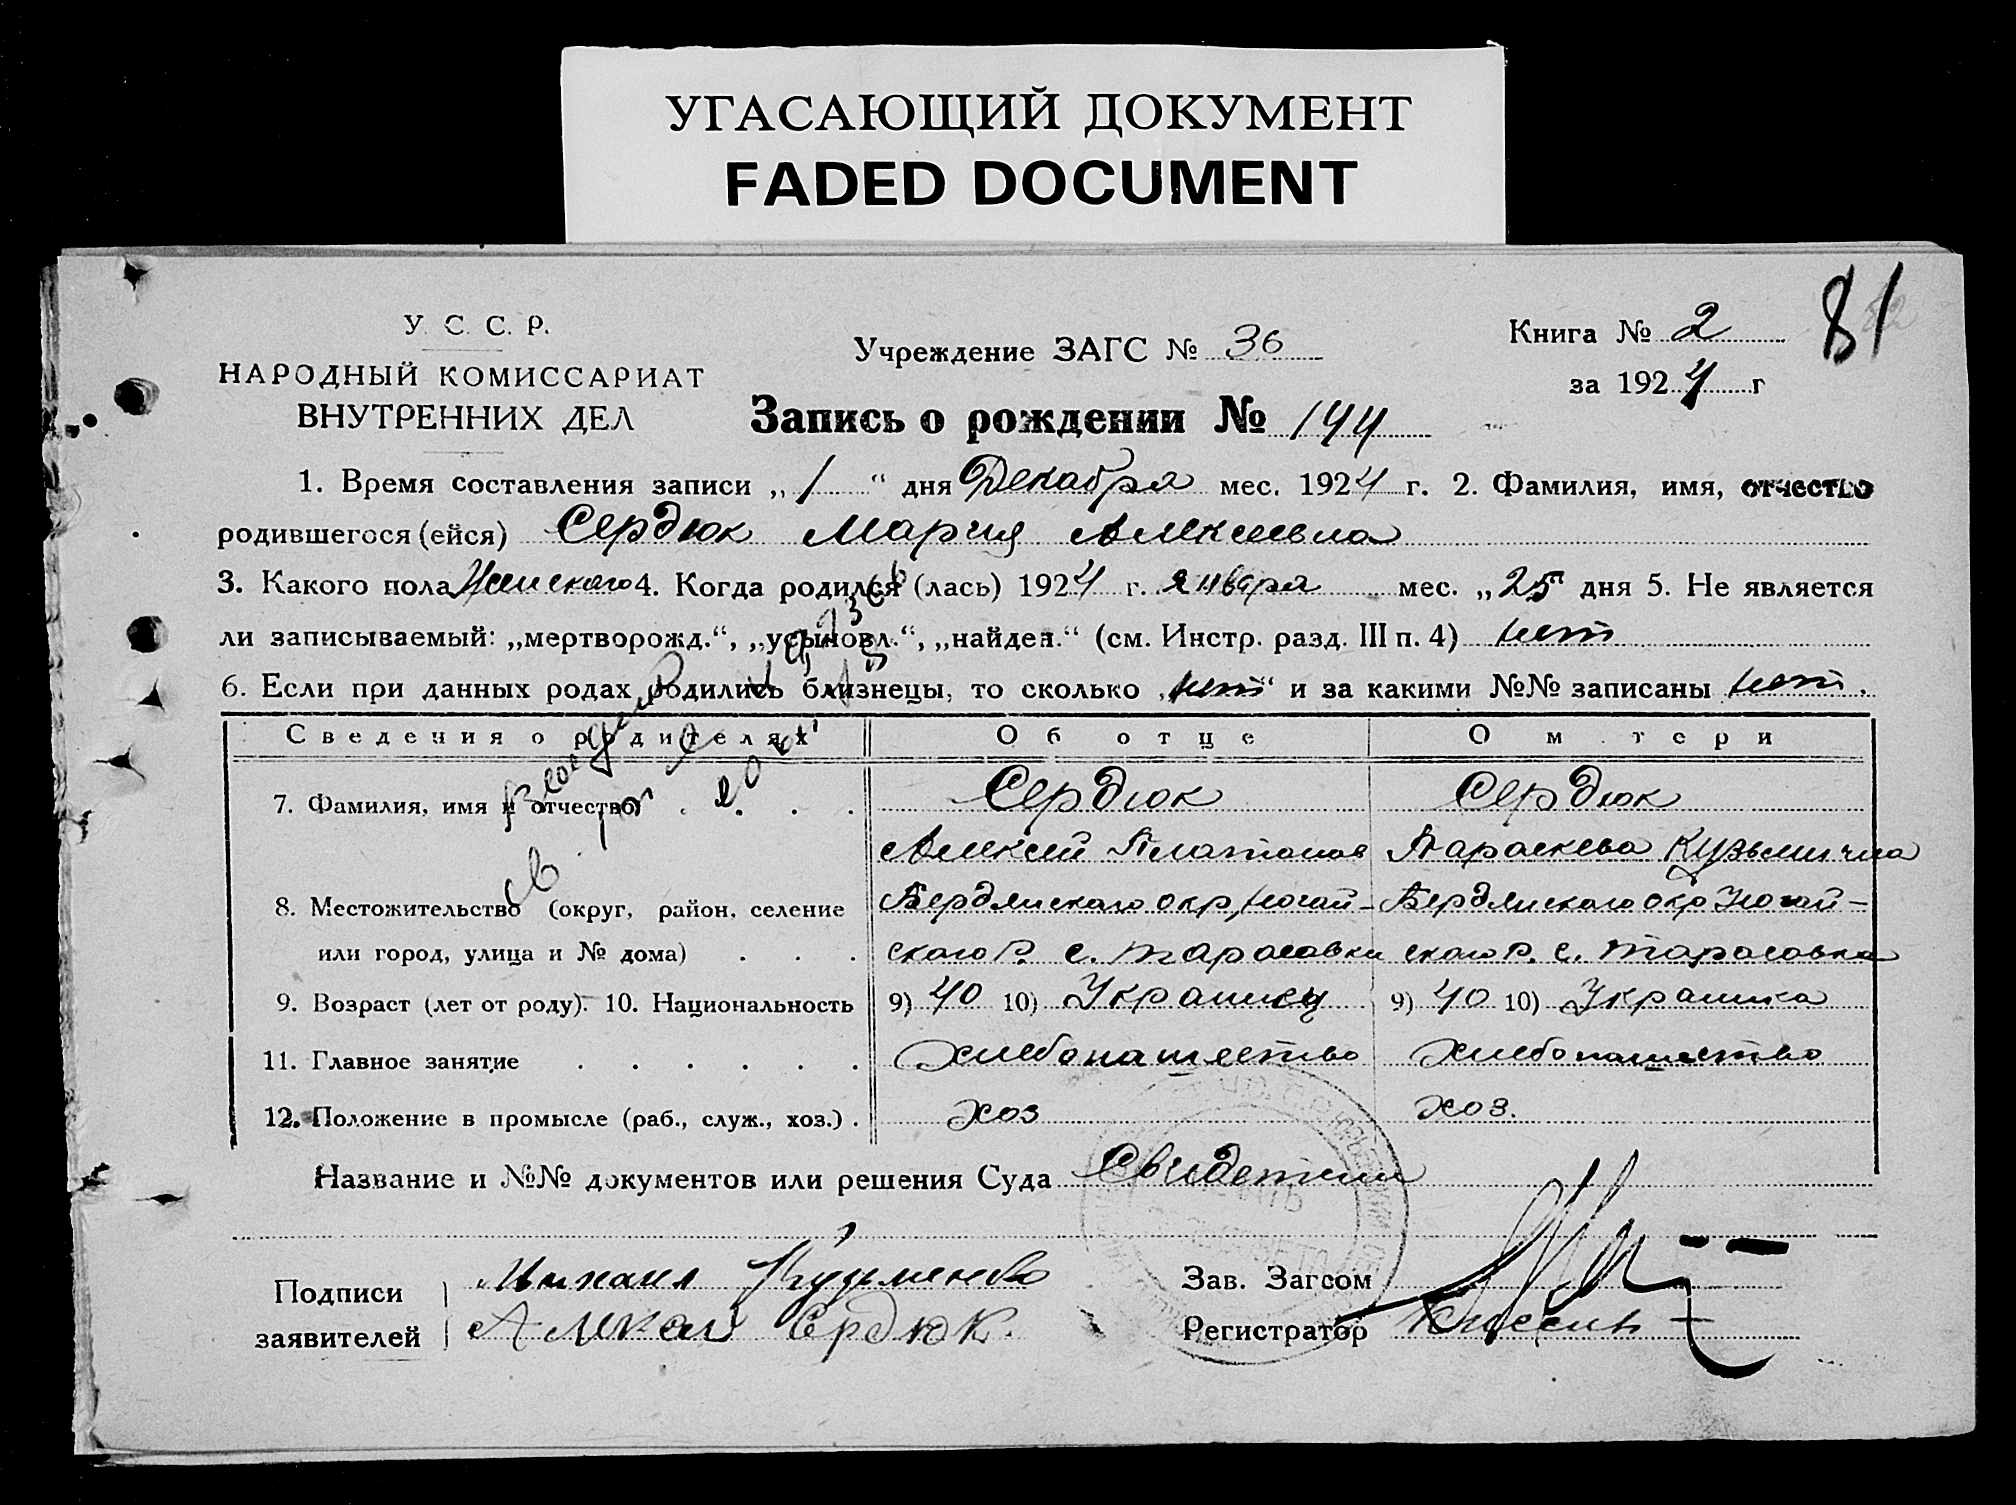 УГАСАЮЩИЙ ДОКУМЕНТ
FADED DOCUMENT
81
У. С. С. Р.
НАРОДНЫЙ КОМИССАРИАТ
ВНУТРЕННИХ ДЕЛ
Учреждение ЗАГС № 36
Книга № 2
за 1924 г
Запись о рождении № 144
1. Время составления записи „1“ дня Декабря мес. 1924 г. 2. Фамилия, имя, отчество
родившегося (ейся) Сердюк Мария Алексеевна
3. Какого пола Женского 4. Когда родился (лась) 1924 г. января мес. „25 дня 5. Не является
ли записываемый: „мертворожд.“, „усыновл.“, „найден.“ (см. Инстр. разд. III п. 4) нет
6. Если при данных родах родились близнецы, то сколько „нет“ и за какими №№ записаны нет.
Сведения о родителях Об отце О м тери
7. Фамилия, имя и отчество Сердюк Сердюк
Алексей Платонов Параскева Кузьминична
8. Местожительство (округ, район, селение Бердянского окр, Ногай- Бердянского окр Ногай-
или город, улица и № дома) ского Р. с. Тарасовка ского Р. с. Тарасовка
9. Возраст (лет от роду). 10. Национальность 9) 40 10) Украинец 9) 40 10) Украинка
11. Главное занятие Хлебопашество Хлебопашество
12. Положение в промысле (раб., служ., хоз.) хоз хоз.
Название и №№ документов или решения Суда Свидетели
Подписи заявителей
Михаил Кузьменко
Алексей Сердюк.
Зав. Загсом
Регистратор